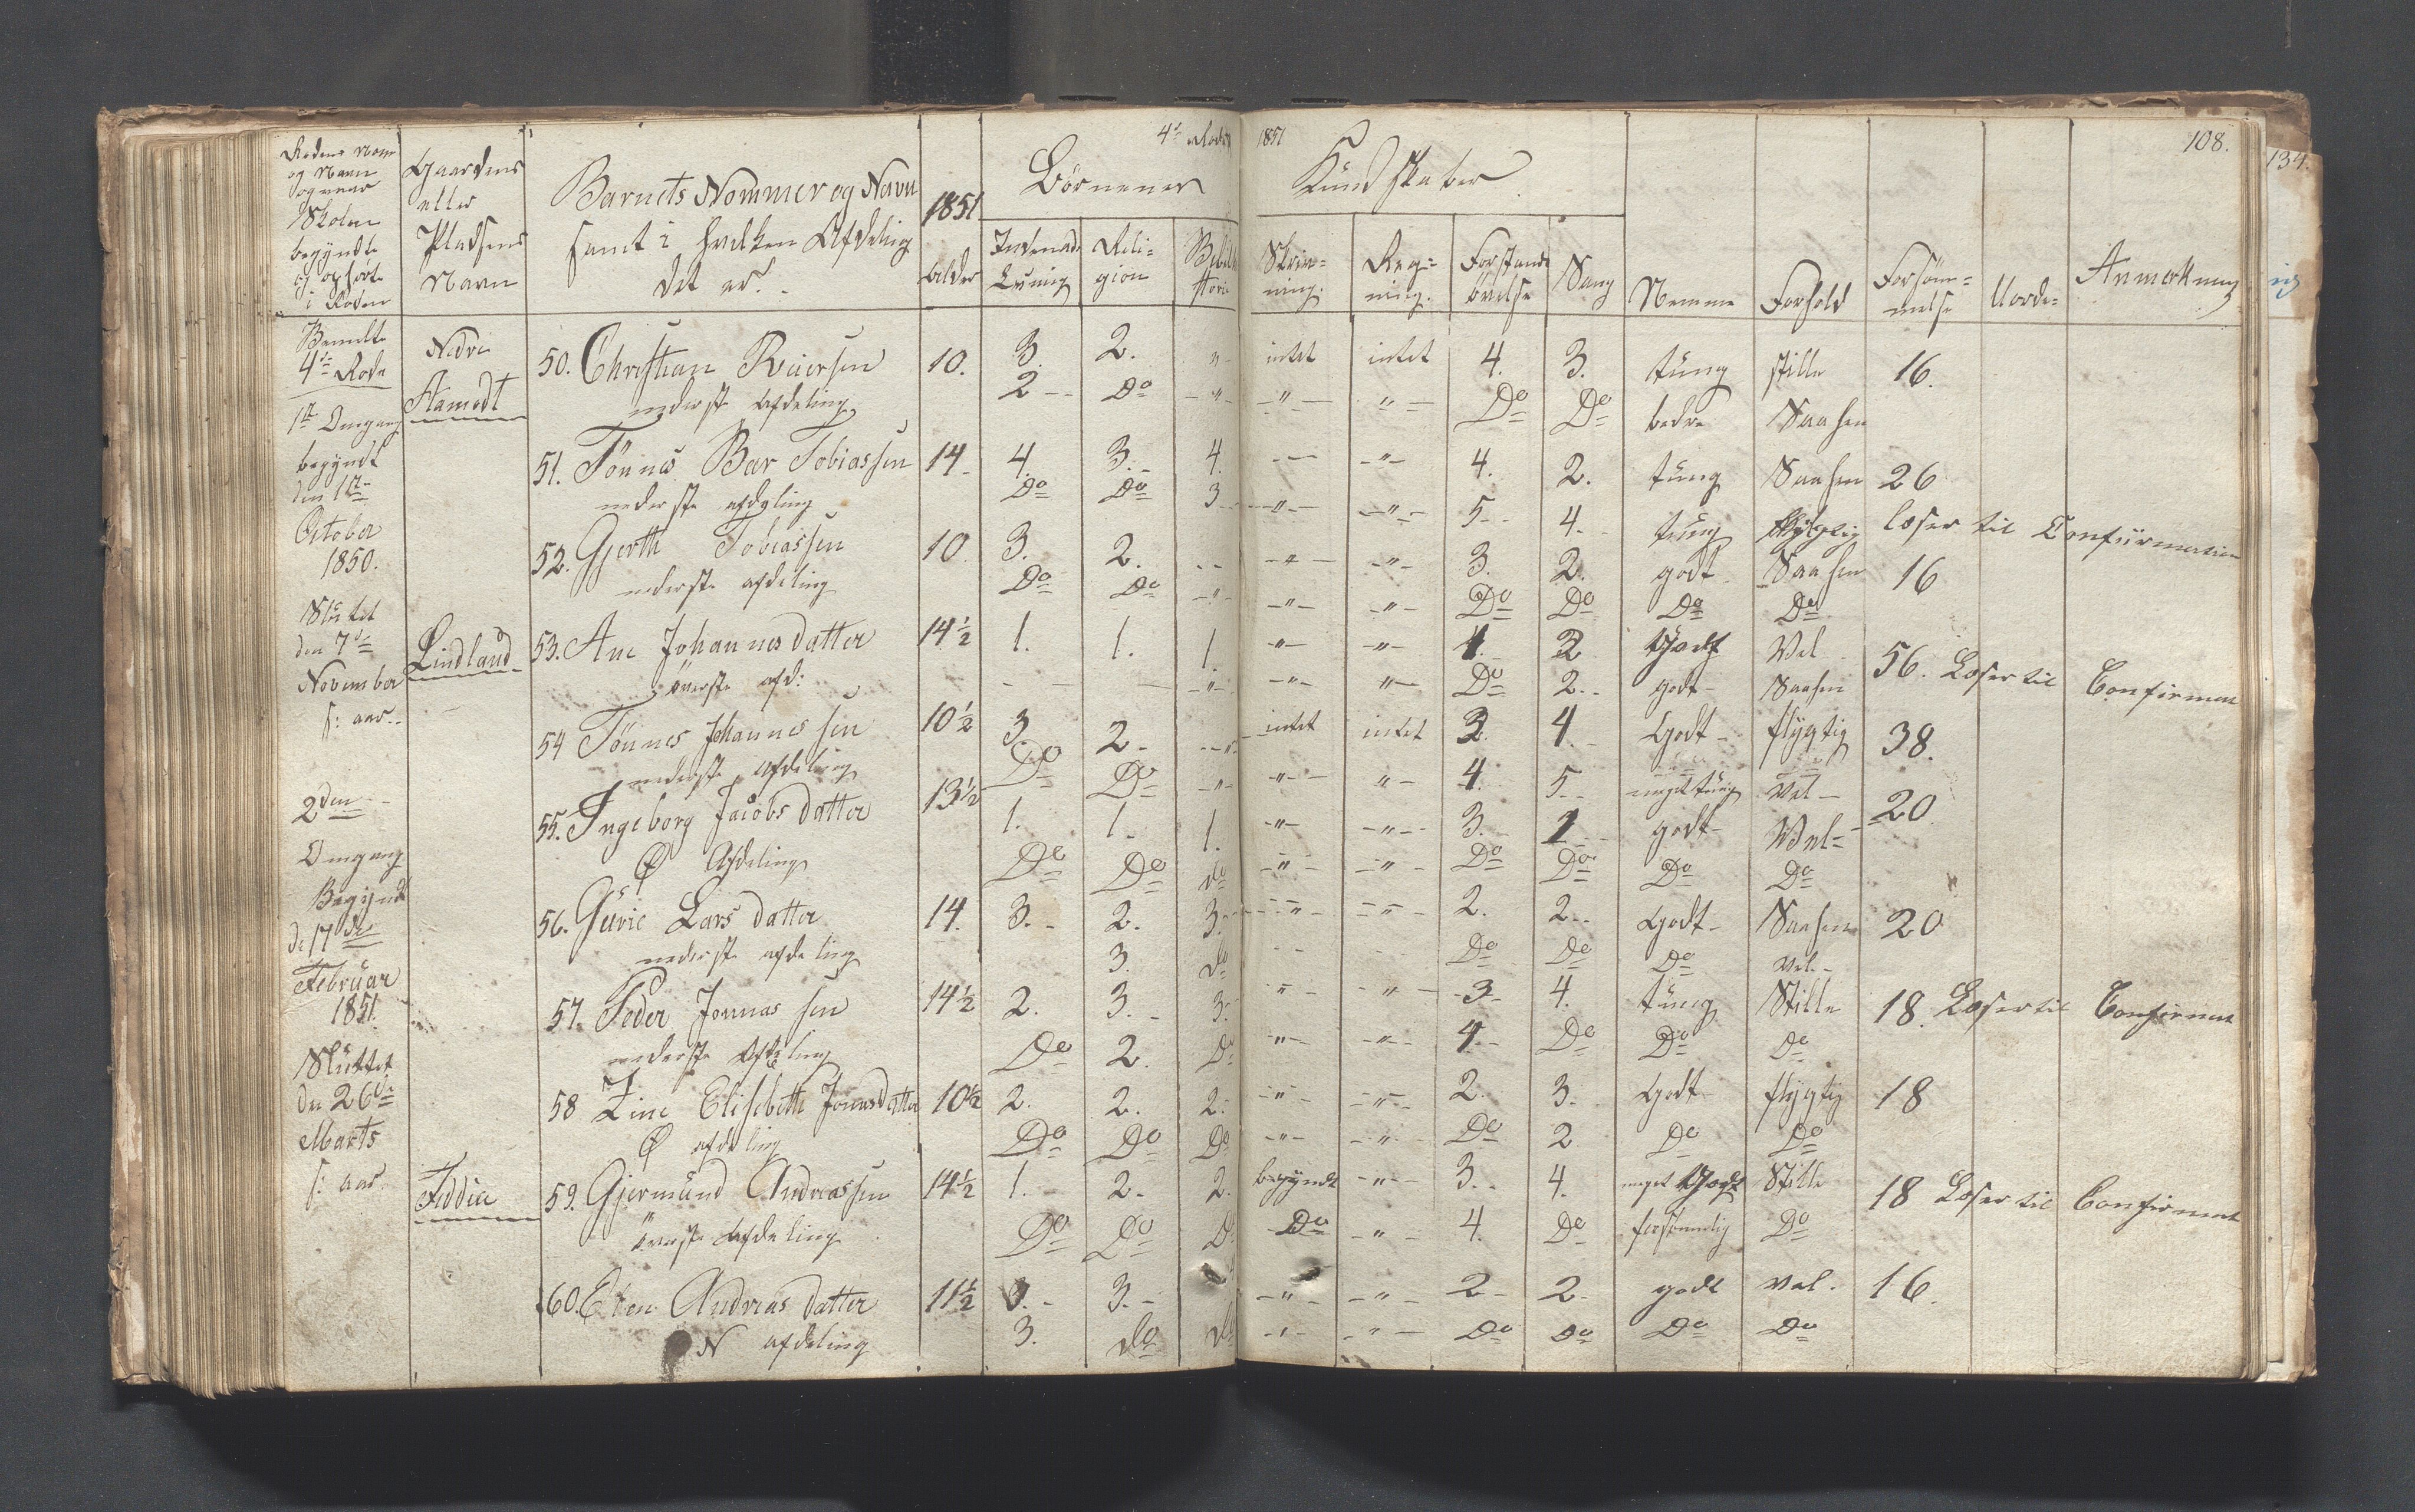 4de Rode 1851 108.
134.
Rodens Nom
og Navn
og naar
Skolen
begyndte
og ophørte
i Roden
Gaardens
eller
Pladsens
Navn
Barnets Nommer og Navn
samt i hvilken Afdeling
det er.
1851
Alder
Børnenes Kundskaber
Indenad-
Læsning
Reli-
gion
Bibel
storie
Skriv-
ning.
Reg-
ning.
Forstands
øvelse
Sang
Nemme
Forhold
Forsøm-
melse
Anmerkning
Bemeldte
4de Rode
1ste Omgang
begyndt
den 1ste
October
1850.
Sluttet
den 7de
November
s: aar.
2den
Omgang
Begyndt
d: 17de
Februar
1851.
Sluttet
den 26de
Marts
s: aar.
Nedre
Aamodt
50. Christian Reiersen 10. 3. 2. " intet intet 4. 3. tung stille 16.
nederste Afdeling 2 Do " " " Do Do bedre Saasen
51. Tönnes Ber Tobiassen 14 4. 3. 4. " 4. 2. tung Saasen 26
nederste afdeling Do Do 3 " " 5 4. tung læser til Confirmation
52. Gjerth Tobiassen 10 3. 2. " " 3. 2. godt Saasen 16
nederste afdeling Do Do " " " Do Do Do Do
Lindland 53. Ane Johannesdatter 14½ 1. 1. 1. " " 4. 2 Godt Vel 56. Læser til Confirmat
överste afd: " " " Do 2. godt Saasen
54 Tönnes Johannessen 10½ 3 2 " intet intet 3. 4. Godt flygtig 38.
nederste Afdeling Do Do " " " 4. 5 meget tung Vel
55. Ingeborg Jacobsdatter 13½ 1. 1. 1. " " 3. 1 godt Vel 20.
Ø Afdeling Do Do do " " Do Do Do Do
56. Gurie Larsdatter 14. 3. 2. 3. " " 2. 2. Godt Saasen 20
nederste afdeling 3. do Do Do Do Vel
57. Peder Jonnassen 14½ 2. 3. 3. " " 3 4. tung Stille 18. Læser til Confirmat
nederste Afdeling Do 2. Do " " 4 Do Do Do
58 Line Elisebeth Jonasdatter 10½ 2. 2. 2. " " 2. 3. Godt flygtig 18
Ø afdeling Do Do Do " " Do 2 Do Do
Feddia 59. Gjermund Andreassen 14½ 1. 2. 2. begyndt " 3. 4. meget Godt Stille 18 Læser til Confirmat
överste Afdeling Do Do Do Do " 4. Do forstandig Do
60. Elen Andreasdatter 11½ 3. " " 2 2. godt vel. 16.
N afdeling 3. do do " " Do Do Do Do